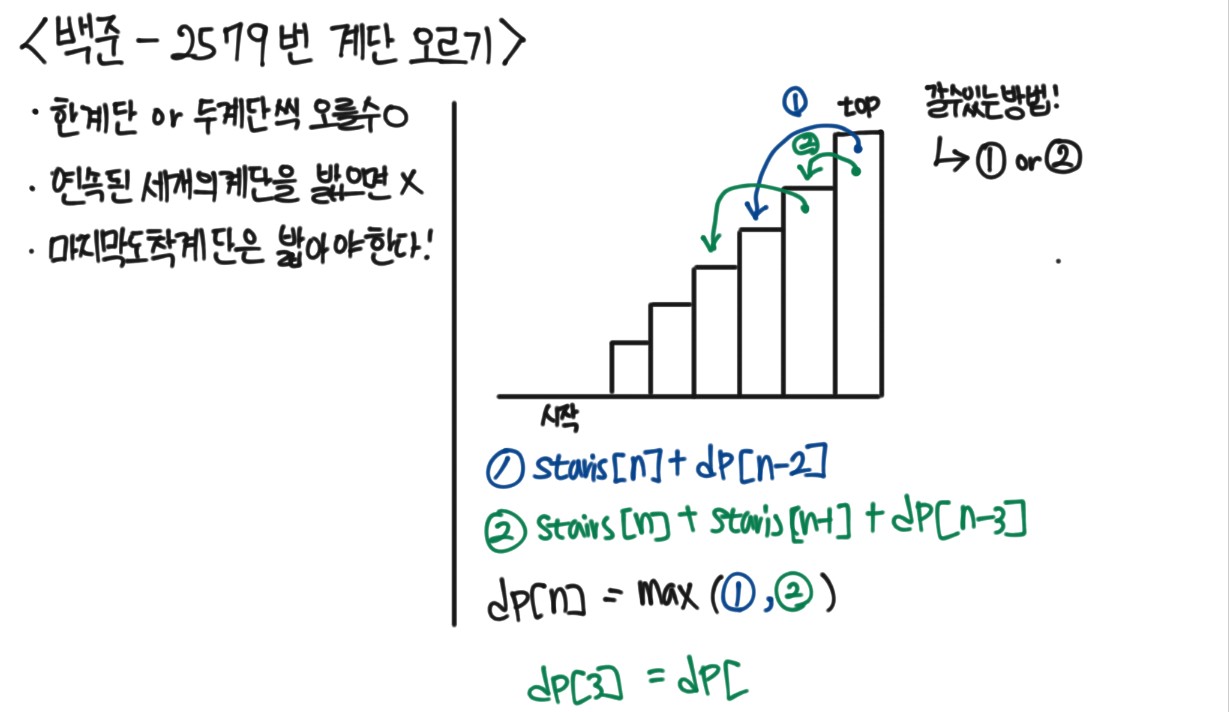 <백준 - 2579번 계단 오르기>
· 한계단 or 두계단씩 오를수O
· 연속된 세개의계단을 밟으면 X
· 마지막도착계단은 밟아야한다!
① top
②
갈수있는방법!
↳ ① or ②
시작
① stairs[n] + dp[n-2]
② stairs[n] + stairs[n-1] + dp[n-3]
dp[n] = max (①,②)
dp[3] = dp[